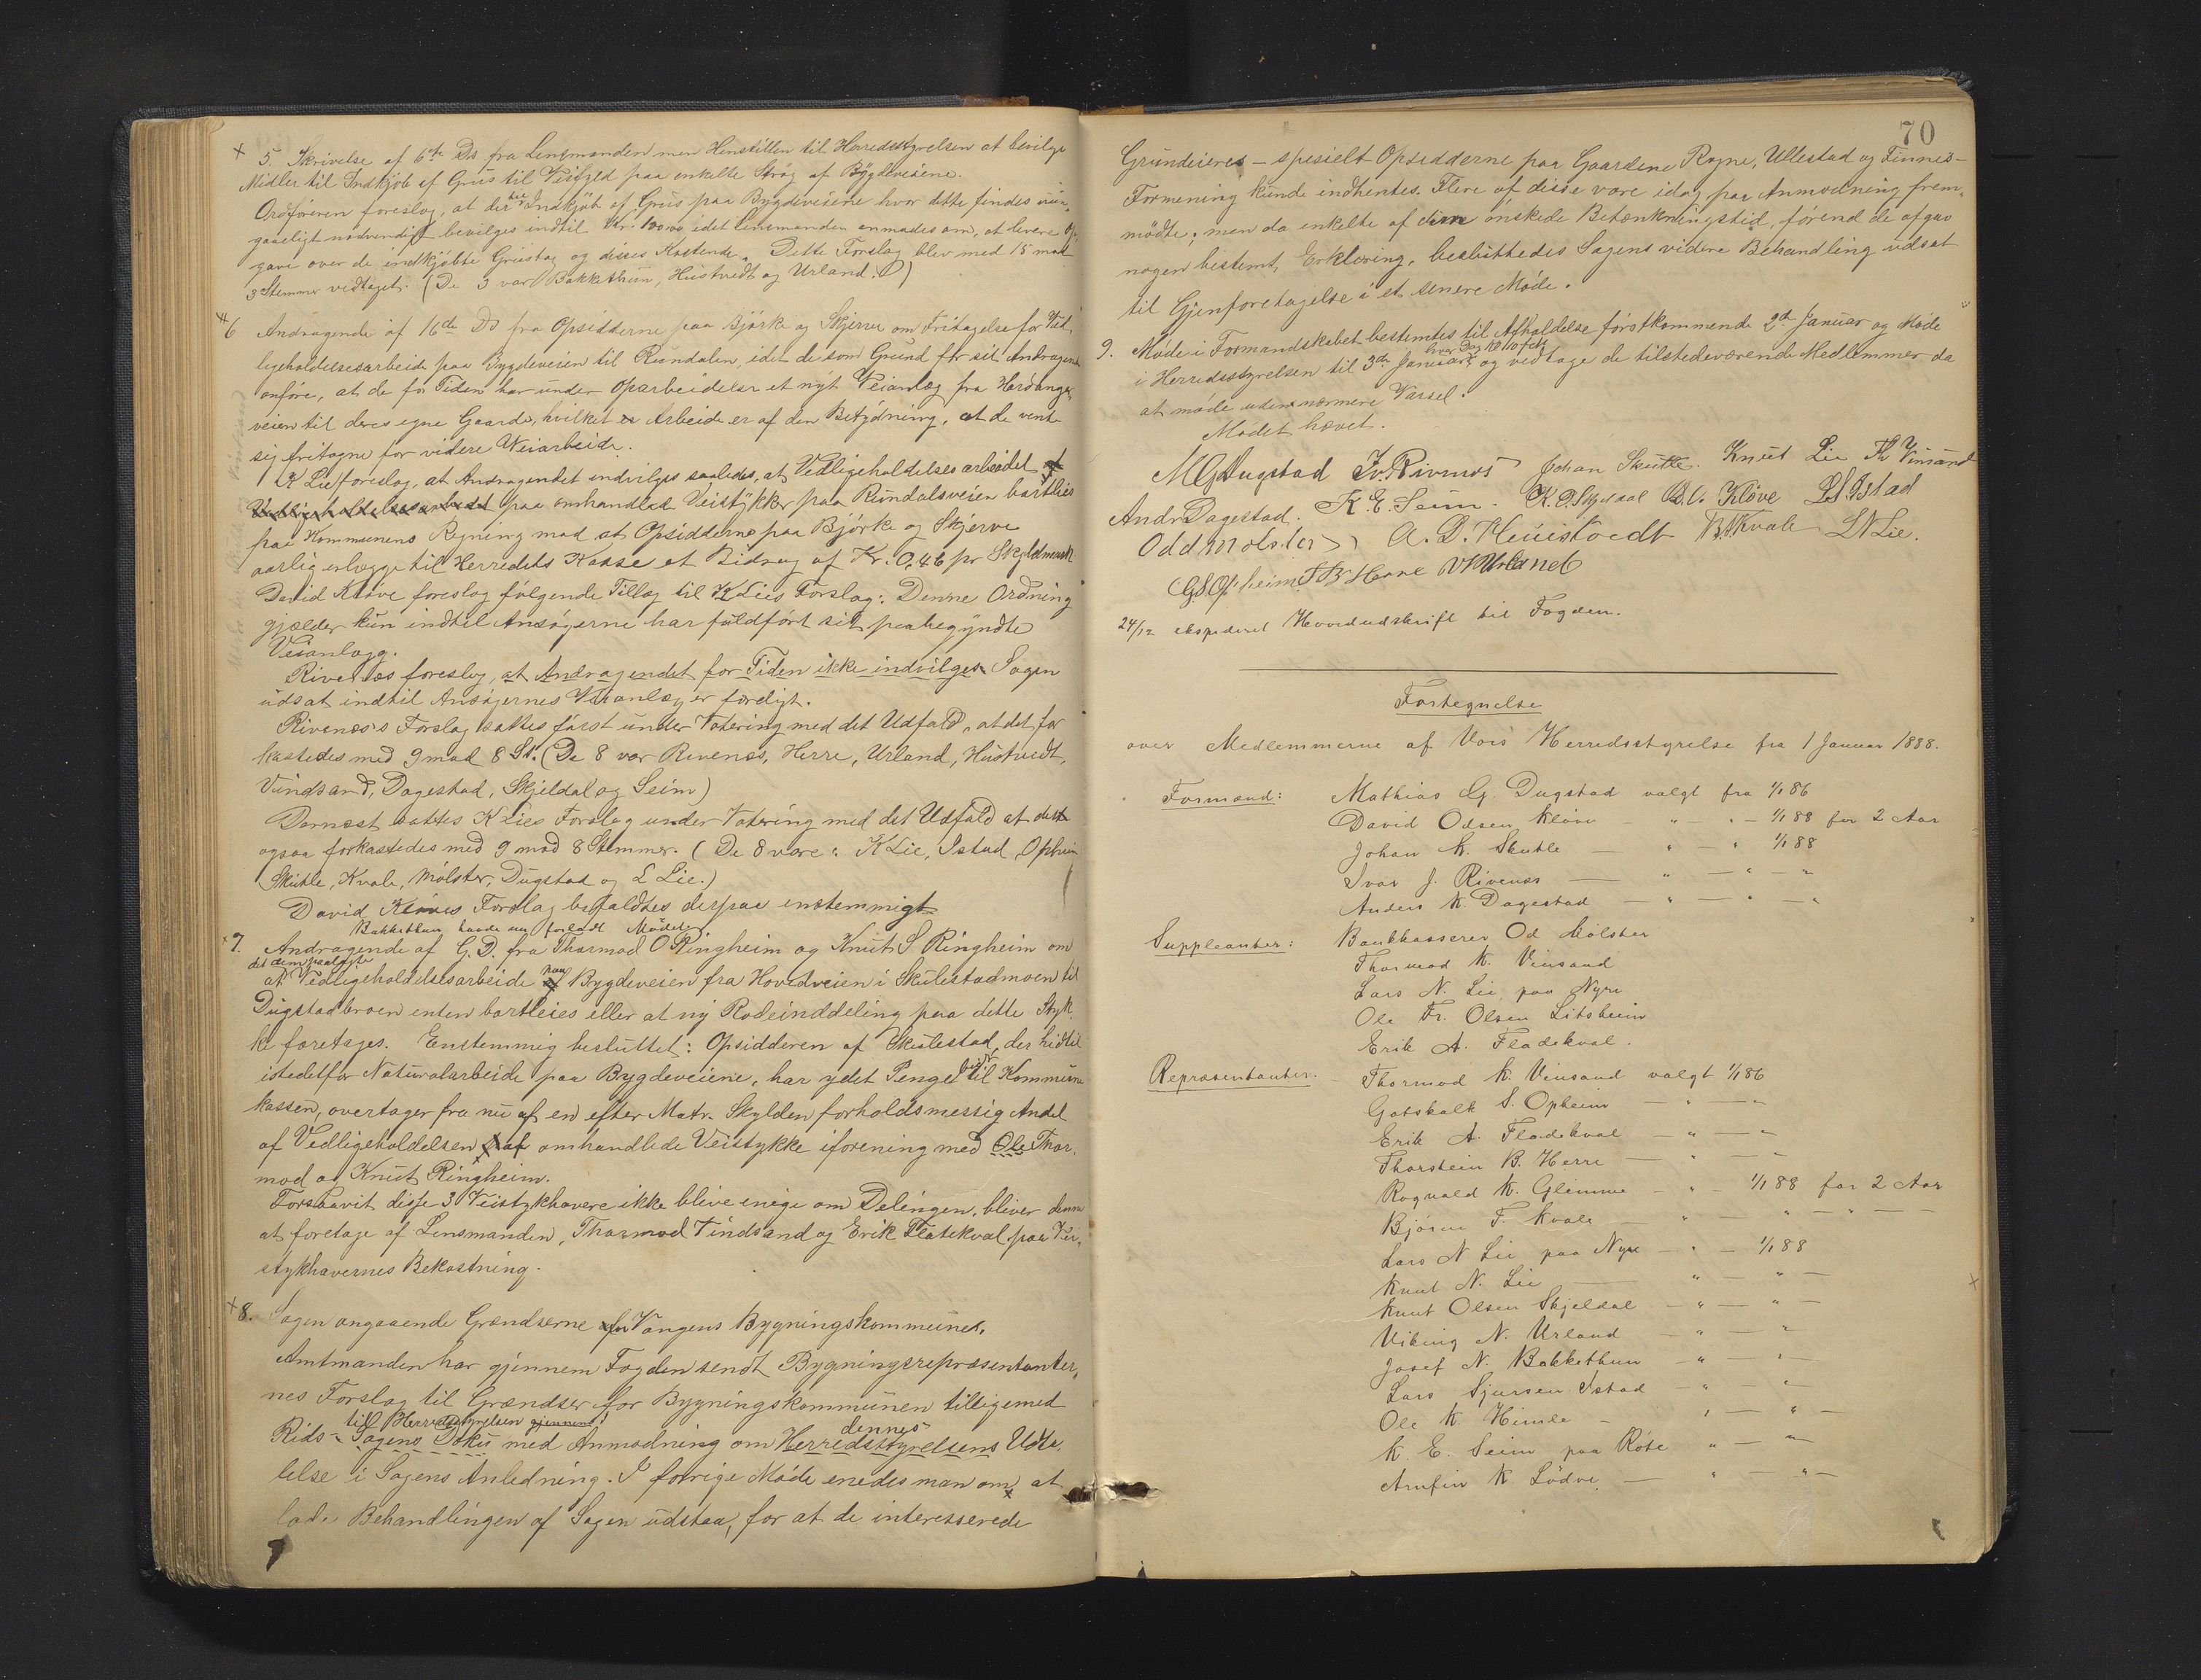 5. Skrivelse af 6te Ds fra Lensmanden men Henstillen til Herredsstyrelsen at bevilge
Midler til Indkjøb af Grus til Veifyld paa enkelte Strøg af Bygdeveiene.
Ordføreren foreslog, at der til Indkjøb af Grus paa Bygdeveiene hvor dette findes uun-
gaaeligt nødvendigt bevilges indtil Kr. 100,00 idet lensmanden anmodes om, at levere Op-
gave over de indkjøbte Grustag og disses Kostende. Dette Forslag blev med 15 mod
3 Stemmer vedtaget. (De 3 var Bakkethun, Hustvedt og Urland.)
6 Andragende af 16de Ds fra Opsidderne paa Bjørke og Skjerve om Fritagelse for Ved-
ligeholdelsesarbeide paa Bygdeveien til Rundalen, idet de som Grund for sit Andragende
anføre, at de for Tiden har under Oparbeidelse et nyt Veianlæg fra Hardanger-
veien til deres egne Gaarde, hvilket Arbeide er af den Betydning, at de vente
sig fritagne for videre Veiarbeide.
K Lie foreslog, at Andragendet indvilges saaledes, at Vedligeholdelsesarbeidet af
Vedligeholdelsesarbeidet paa omhandled Veistykker paa Rundalsveien bortlies
paa Kommunens Regning mod at Opsidderne paa Bjørke og Skjerve
aarlig erlægge til Herredets Kasse et Bidrag af Kr. 0,46 pr Skyldmark
David Kløve foreslog følgende Tillæg til K Lies Forslag: Denne Ordning
gjælder kun indtil Ansøgerne har fuldført sit paabegyndte
Veianlægg.
Rivenæs foreslog, at Andragendet for Tiden ikke indvilges Sagen
udsat indtil Ansøgernes Veianlæg er færdigt.
Rivenæs's Forslag sattes først under Votering med det Udfald, at det for
kastedes med 9 mod 8 St. (De 8 var Rivenæs, Herre, Urland, Hustvedt,
Vindsand, Dagestad, Skjeldal og Seim)
Dernæst sattes K Lies Forslag under Votering med det Udfald at dette
ogsaa forkastedes med 9 mod 8 Stemmer. (De 8 vare: K Lie, Istad, Opheim
Skutle, Kvale, Mølster, Dugstad og L Lie.)
David Kløves Forslag bifaldtes derpaa enstemmigt
Bakkethun havde nu forladt Mødet.
7. Andragende af G. D. fra Thormod O Ringheim og Knut S Ringheim om
det dem paalagte
at Vedligeholdelsesarbeide paa Bygdeveien fra Hovedveien i Skulestadmoen til
Dugstadbroen enten bortleies eller at ny Rodeinddeling paa dette Styk-
ke foretages. Enstemmig besluttet: Opsidderen af Skulestad, der hidtil
istedetfor Naturalarbeide paa Bygdeveiene, har ydet Penge til Kommune
kassen, overtager fra nu af en efter Matr. Skylden forholdsmessig Andel
af Vedligeholdelsen af omhandlede Veistykke iforening med Ole Thor-
mod og Knut Ringheim.
Forsaavit disse 3 Veistykhavere ikke blive enige om Delingen, bliver denne
at foretage af Lensmanden, Thormod Vindsand og Erik Flatekval paa Vei-
stykhavernes Bekostning.
8. Sagen angaaende Grændserne for Vangens Bygningskommune.
Amtmanden har gjennem Fogden sendt Bygningsrepræsentanter-
nes Forslag til Grændser for Bygningskommunen tilligemed
til Herredsstyrelsen gjennem dennes
Rids- Sagens Doku med Anmodning om Herredsstyrelsens Udta-
lelse i Sagens Anledning. I forrige Møde enedes man om, at
lade Behandlingen af Sagen udstaa, for at de interesserede
70
Grundeieres – spesielt Opsidderne paa Gaardene Rogne, Ullestad og Finnes –
Formening kunde indhentes. Flere af disse vare idag paa Anmodning frem-
mødte; men da enkelte af dem ønskede Betænkningstid, førend de afgav
nogen bestemt Erklæring, besluttedes Sagens videre Behandling udsat
til Gjenforetagelse i et senere Møde.
9. Møde i Formandskabet bestemtes til Afholdelse førstkommende 2den Januar og Møde
hver Dag Kl 10 fmd
i Herredsstyrelsen til 3die Januar, og vedtage de tilstedeværende Medlemmer da
at møde uden nærmere Varsel.
Mødet hævet.
M G Dugstad Iv. Rivenæs Johan Skutle. Knut Lie Th Vinsand
And. Dagestad. K. E. Seim. K. O. Skjeldal D. O. Kløve L S Istad
Odd Mølster A. D. Heuistvedt B F Kvale L N Lie.
G S Opheim T B Herre V N Urland
24/12 ekspederet Hovedudskrift til Fogden.
Fortegnelse
over Medlemmerne af Vors Herredsstyrelse fra 1 Januar 1888.
Formænd: Mathias G. Dugstad valgt fra 1/1 86
David Odsen Kløve — " — " — 1/1 88 for 2 Aar
Johan K. Skutle — " — " 1/1 88
Ivar J. Rivenæs — " — " — "
Anders K. Dagestad — " — " — "
Suppleanter: Bankkasserer Od Mølster
Thormod K. Vinsand
Lars N. Lie paa Nyre
Ole Fr. Olsen Litsheim
Erik A. Fladekval.
Repræsentanter. Thormod K. Vinsand valgt 1/1 86
Gotskalk S. Opheim — " — " —
Erik A. Fladekval — " — "
Thorstein B. Herre — " — " —
Rognald K. Glimme — " — 1/1 88 for 2 Aar
Bjørn F. Kvale — " — " — " — —
Lars N Lie paa Nyre — " — 1/1 88
Knut N. Lie — " — " —
Knut Olsen Skjeldal — " — " —
Viking N. Urland — " — "
Josef N. Bakkethun — " — " —
Lars Sjursen Istad — " — " —
Ole K. Himle — " — " —
K. E. Seim paa Røte " — " —
Arnfin K Lødve — " — " —